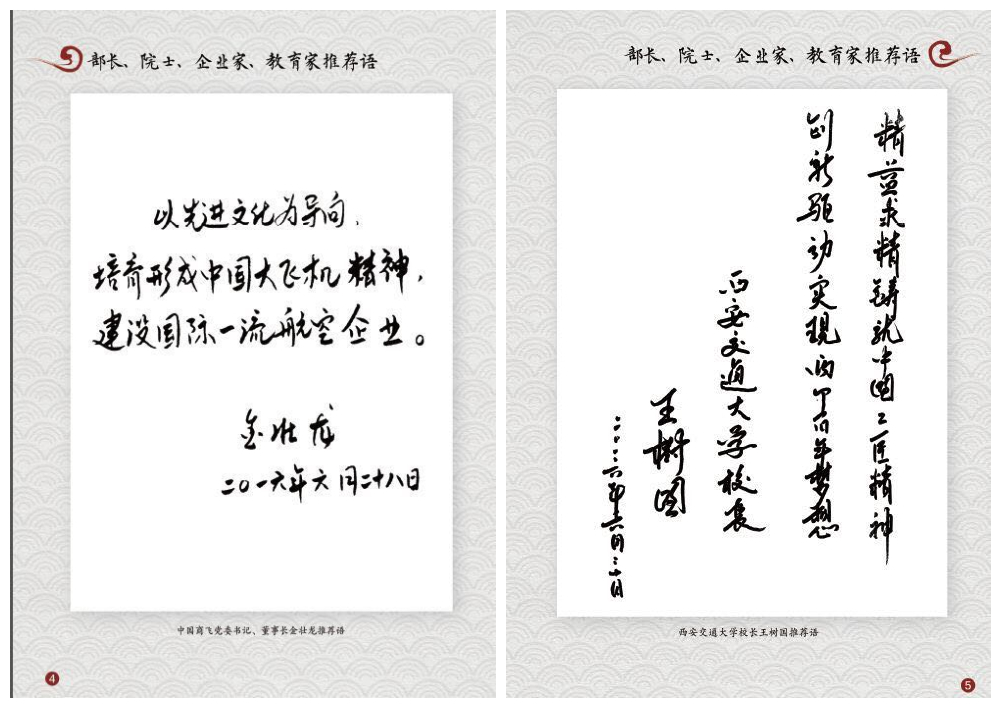 部长、院士、企业家、教育家推荐语
以先进文化为导向,
培育形成中国大飞机精神,
建设国际一流航空企业。
金壮龙
二〇一六年六月二十八日
中国商飞党委书记、董事长金壮龙推荐语
4
部长、院士、企业家、教育家推荐语
精益求精铸就中国工匠精神
创新驱动实现两个百年梦想
西安交通大学校长
王树国
二〇一六年六月三十日
西安交通大学校长王树国推荐语
5